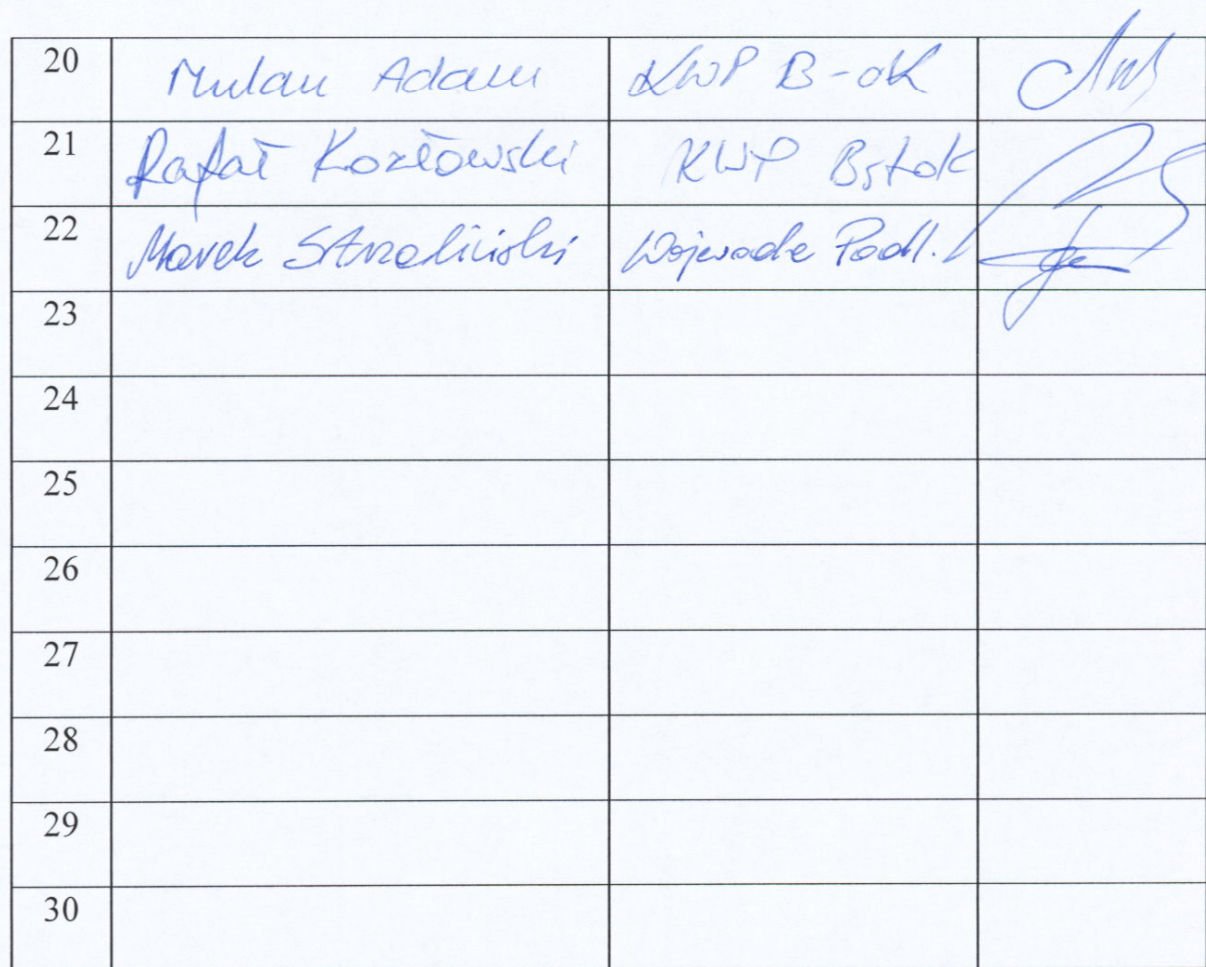 20 Mulan Adam KWP B-ok
21 Rafał Kozłowski KWP Bstok
22 Marek Strzaliński Wojewoda Podl.
23
24
25
26
27
28
29
30